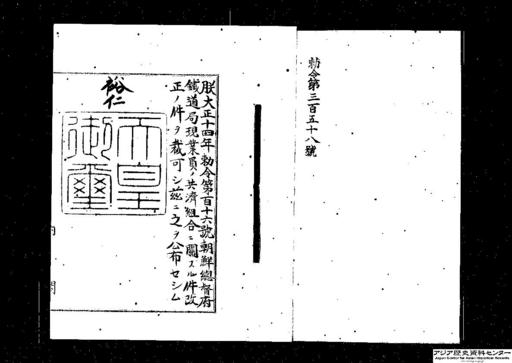 勅令第三百五十八號
朕大正十四年勅令第百十六號朝鮮總督府
鐵道局現業員ノ共濟組合ニ關スル件改
正ノ件ヲ裁可シ茲ニ之ヲ公布セシム
裕仁
天皇
御璽
内閣
アジア歴史資料センター
Japan Center for Asian Historical Records